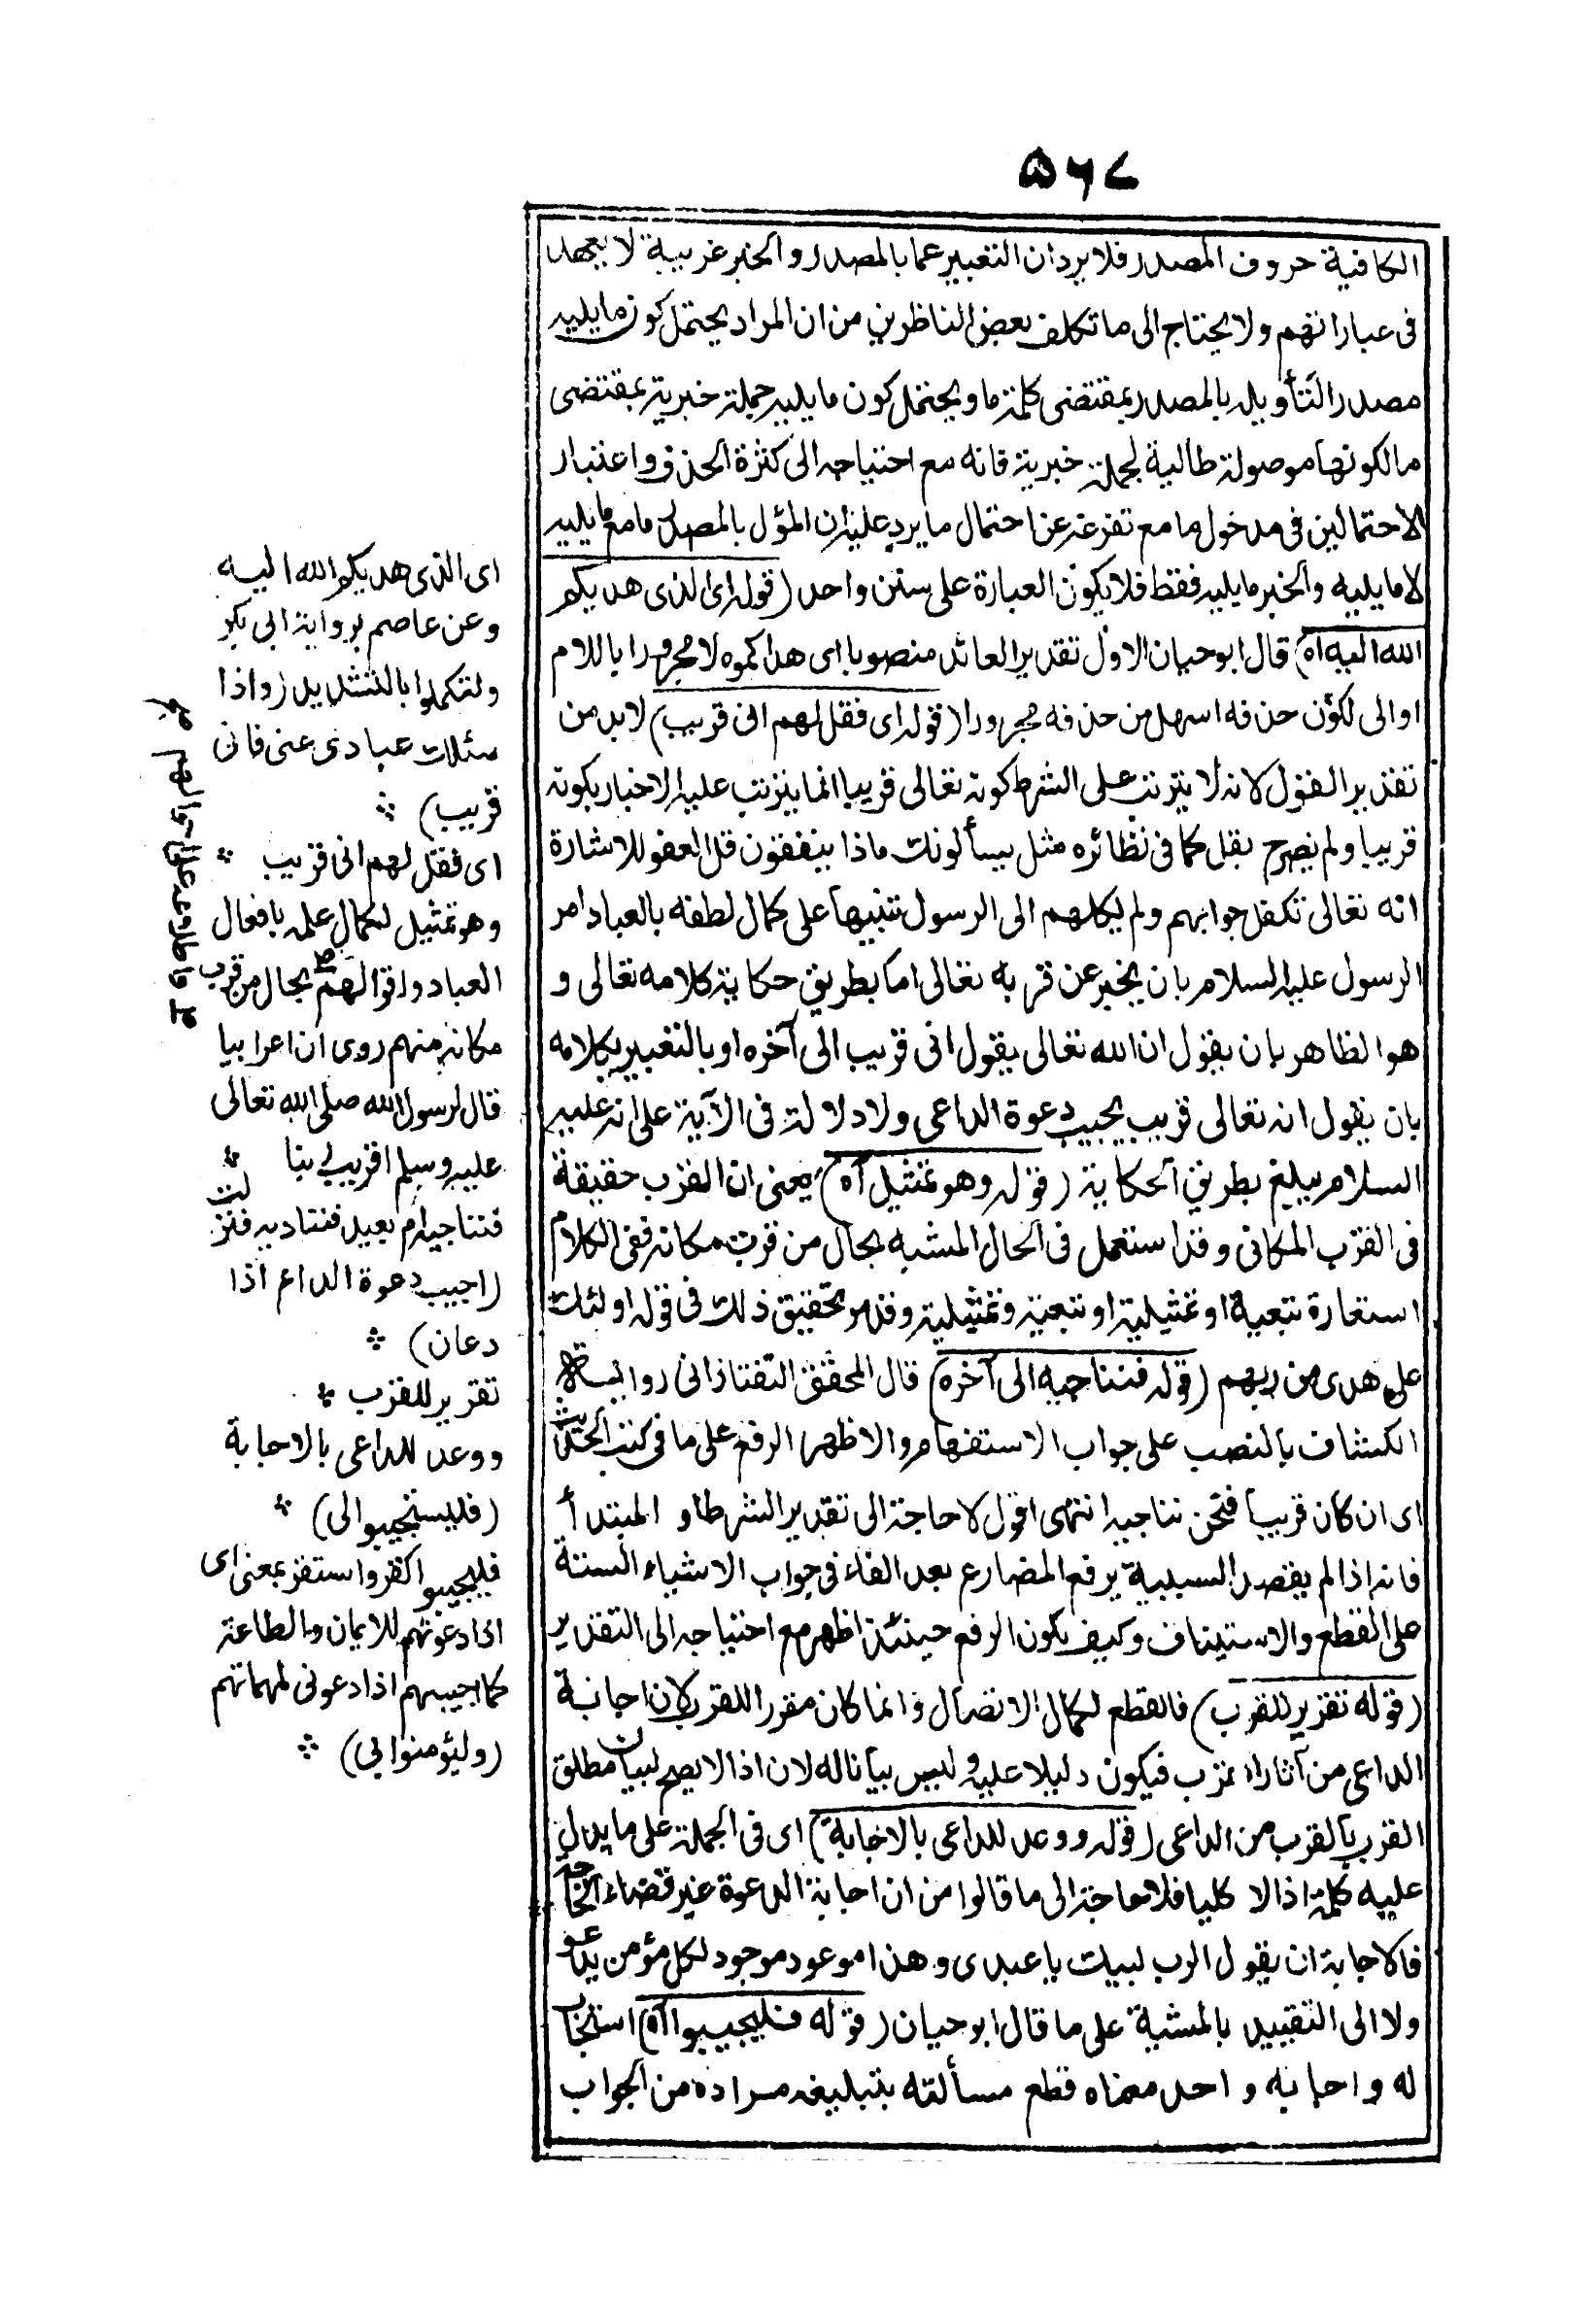 ٥٦٧
الكافية حروف المصدر فلا يرد ان التعبير عما بالمصدر والخبر غريبة لا يعهد
فى عباراتهم ولا يحتاج الى ما تكلف بعض الناظرين من ان المراد يحتمل كون ما يليه
مصدر التأويله بالمصدر بمقتضى كلمة ما ويحتمل كون ما يليه جملة خبرية بمقتضى
ما لكونها موصولة طالبة لجملة خبرية فانه مع احتياجه الى كثرة الحذف واعتبار
الاحتمالين فى مدخول ما مع تفرعه عن احتمال ما يرد عليه ان المؤل بالمصدر ما مع ما يليه
لا ما يليه والخبر ما يليه فقط فلا يكون العبارة على سنن واحد (قوله اى الذى هديكم
الله اليه اه) قال ابو حيان الاول تقدير العائد منصوبا اى هداكموه لا مجرورا باللام
او الى لكون حذفه اسهل من حذفه مجرورا (قوله اى فقل لهم انى قريب) لابد من
تقدير القول لانه لا يترتب على الشرط كونه تعالى قريبا انما يترتب عليه الاخبار بكونه
قريبا ولم يصرح بقل كما فى نظائره مثل يسألونك ماذا ينفقون قل العفو للاشارة
انه تعالى تكفل جوابهم ولم يكلهم الى الرسول تنبيها على كمال لطفه بالعباد امر
الرسول عليه السلام بان يخبر عن قربه تعالى اما بطريق حكاية كلامه تعالى و
هو الظاهر بان يقول ان الله تعالى يقول انى قريب الى آخره او بالتعبير بكلامه
بان يقول انه تعالى قريب يجيب دعوة الداعى ولا دلالة فى الآية على انه عليه
السلام يبلغ بطريق الحكاية (قوله وهو تمثيل اه) يعنى ان القرب حقيقة
فى القرب المكانى وقد استعمل فى الحال المشبه بحال من قرب مكانه ففى الكلام
استعارة تبعية او تمثيلية او تبعية وتمثيلية وقد مر تحقيق ذلك فى قوله اولئك
على هدى من ربهم (قوله فنناجيه الى آخره) قال المحقق التفتازانى رواية
الكشاف بالنصب على جواب الاستفهام والاظهر الرفع على ما فى كتب الحديث
اى ان كان قريبا فنحن نناجيه انتهى اقول لا حاجة الى تقدير الشرط او المبتدأ
فانه اذا لم يقصد السببية يرفع المضارع بعد الفاء فى جواب الاشياء الستة
على القطع والاستيناف وكيف يكون الرفع حينئذ اظهر مع احتياجه الى التقدير
(قوله تقرير للقرب) فالقطع لكمال الاتصال وانما كان مقررا للقرب لان اجابة
الداعى من آثار القرب فيكون دليلا عليه وليس بيانا له لان اذا لا يصح لبيان مطلق
القرب بالقرب من الداعى (قوله ووعد للداعى بالاجابة) اى فى الجملة على ما يدل
عليه كلمة اذا لا كليا فلا حاجة الى ما قالوا من ان اجابة الدعوة غير قضاء الحاجة
فالاجابة ان يقول الرب لبيك يا عبدى وهذا موعود موجود لكل مؤمن يدعو
ولا الى التقييد بالمشية على ما قال ابو حيان (قوله فليجيبوا اه) استجاب
له واجابه واحد معناه قطع مسألته بتبليغه مراده من الجواب
اى الذى هديكم الله اليه
وعن عاصم برواية ابى بكر
ولتكملوا بالتشديد (واذا
سئلك عبادى عنى فانى
قريب)
اى فقل لهم انى قريب
وهو تمثيل لكمال علمه بافعال
العباد واقوالهم بحال من قرب
مكانه منهم روى ان اعرابيا
قال لرسول الله صلى الله تعالى
عليه وسلم اقريب ربنا
فنناجيه ام بعيد فنناديه فنزلت
(اجيب دعوة الداع اذا
دعان)
تقرير للقرب
ووعد للداعى بالاجابة
(فليستجيبوا لى)
اذا دعوتهم للايمان والطاعة
كما اجيبهم اذا دعونى لمهماتهم
(وليؤمنوا بى)
واطلاعه على احوالهم